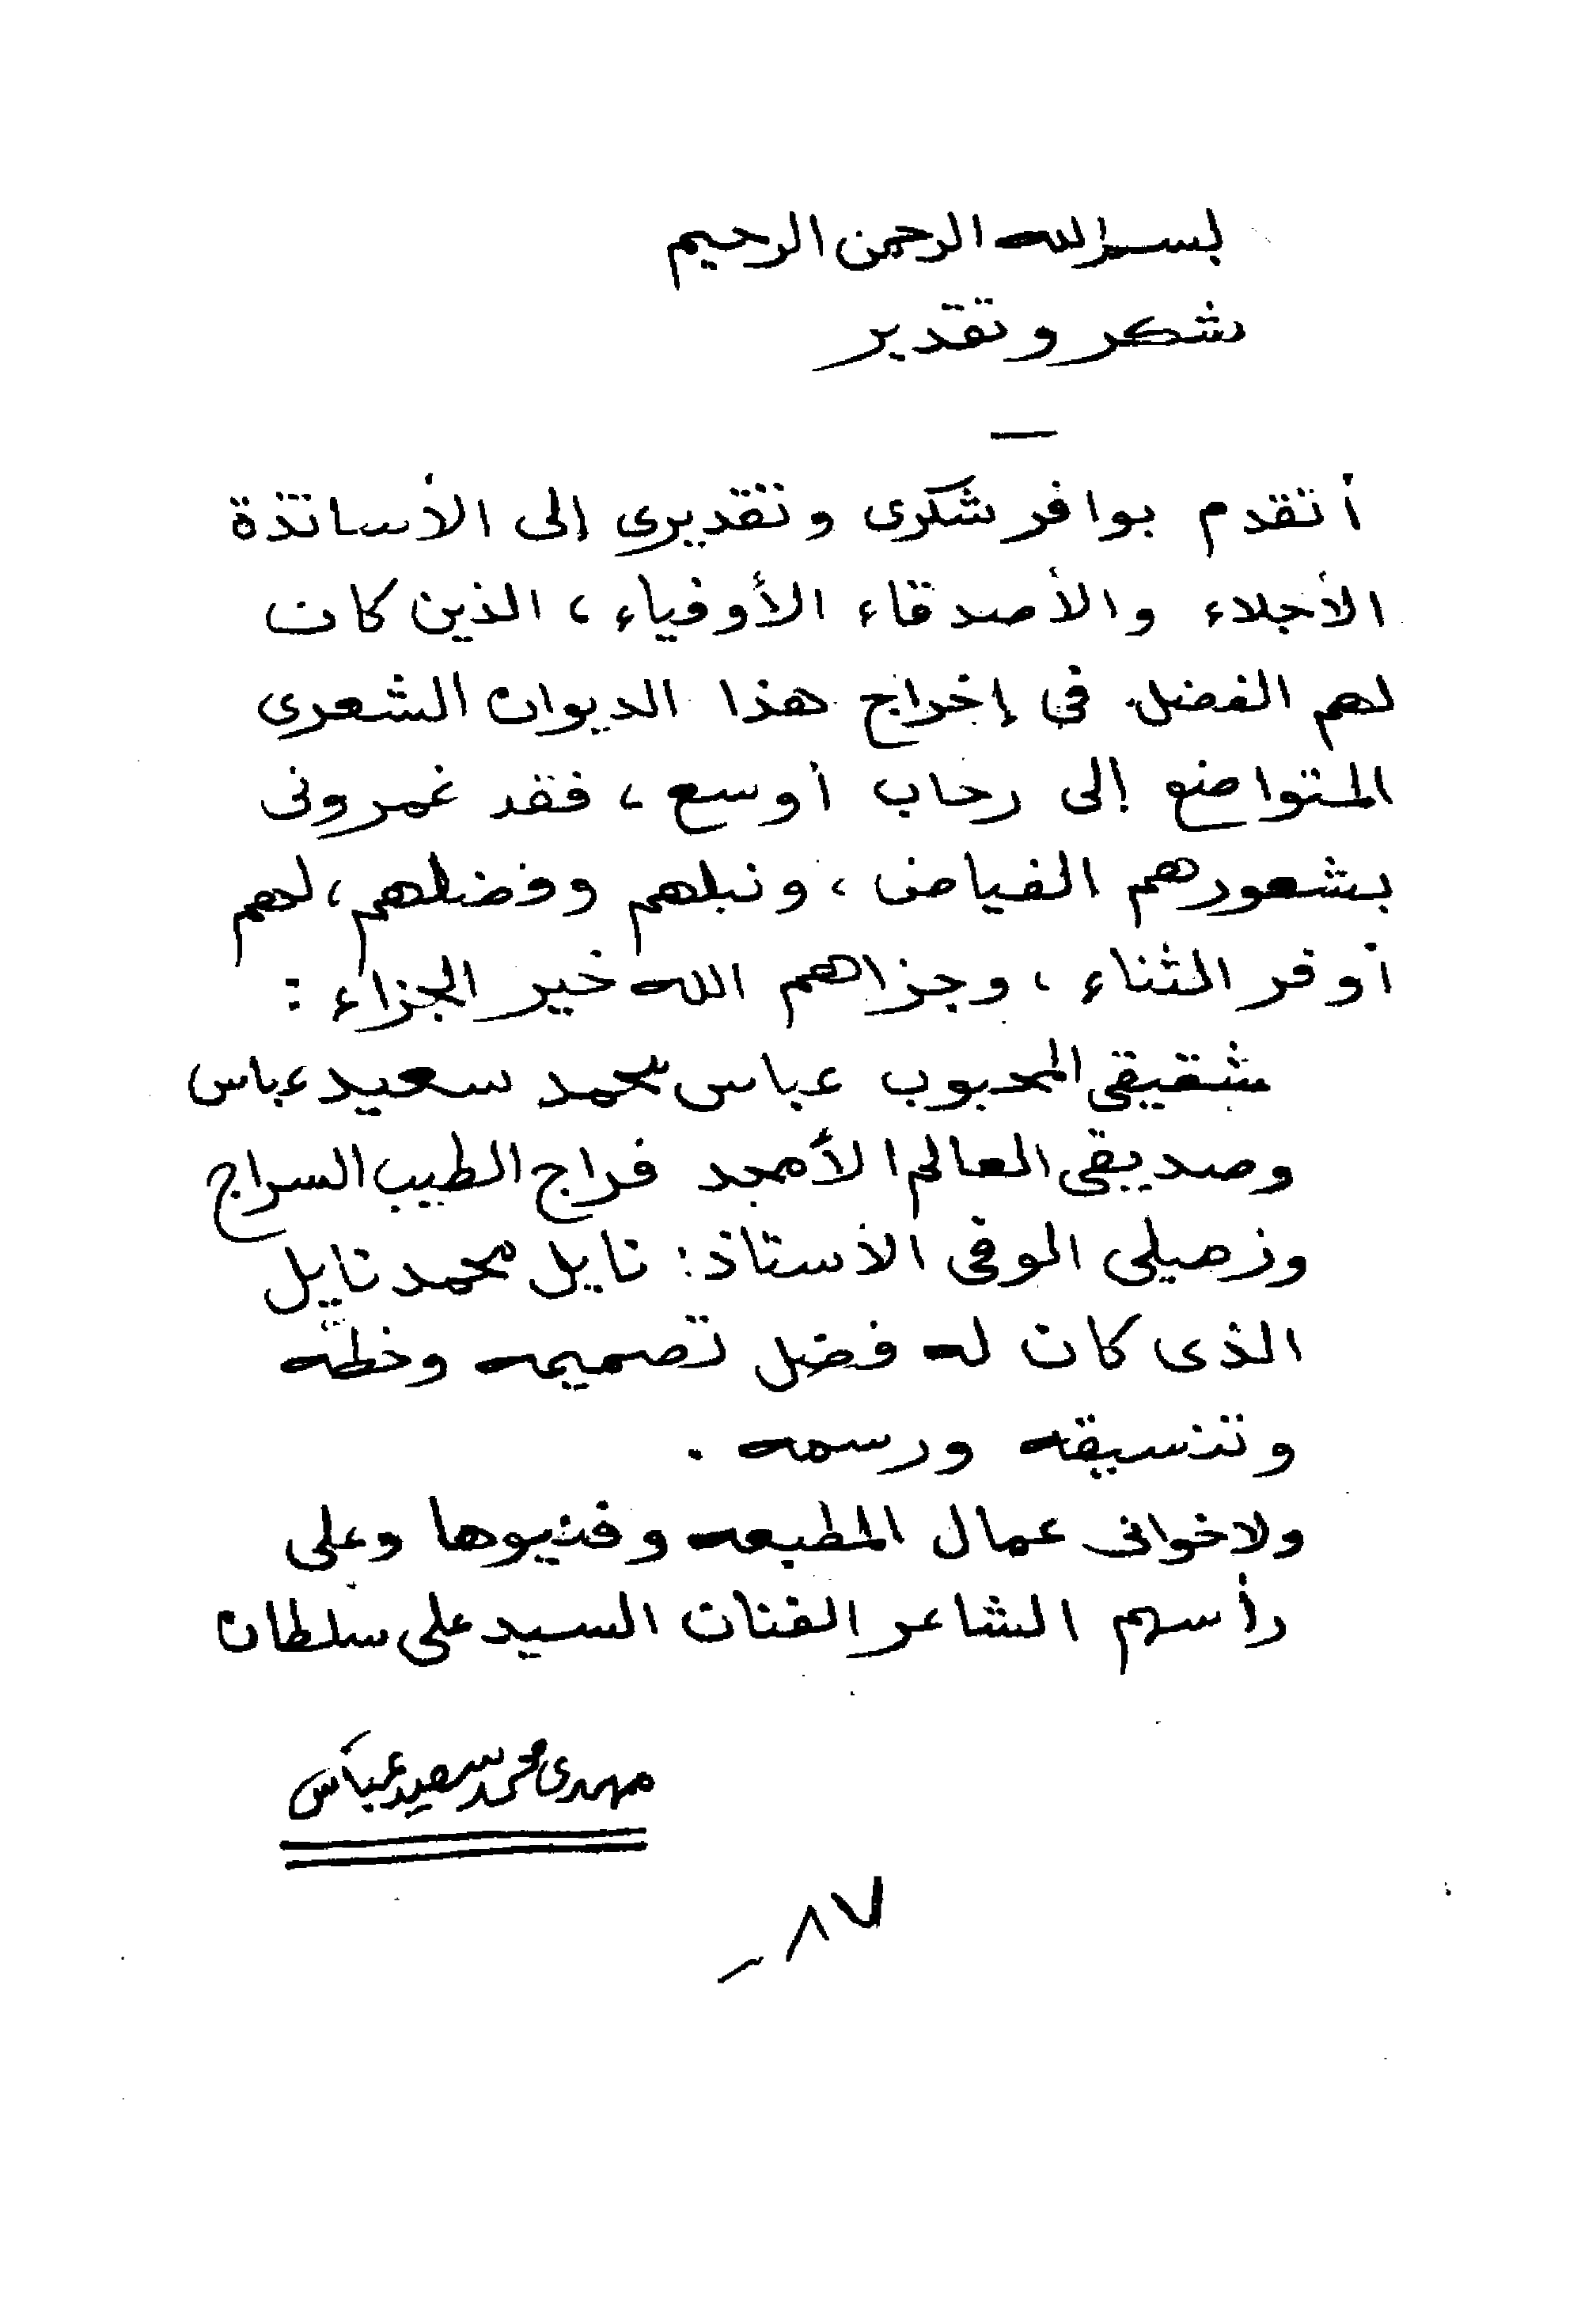 بسم الله الرحمن الرحيم
شكر وتقدير
أتقدم بوافر شكرى وتقديرى إلى الأساتذة
الأجلاء والأصدقاء الأوفياء ، الذين كان
لهم الفضل فى إخراج هذا الديوان الشعرى
المتواضع إلى رحاب أوسع ، فقد غمرونى
بشعورهم الفياض ، ونبلهم وفضلهم ، لهم
أوفر الثناء ، وجزاهم الله خير الجزاء :
شقيقى المحبوب عباس محمد سعيد عباس
وصديقى العالم الأمجد فراج الطيب السراج
وزميلى الوفى الأستاذ : نايل محمد نايل
الذى كان له فضل تصميمه وخطه
وتنسيقه ورسمه .
ولاخوانى عمال المطبعه وفنيوها وعلى
رأسهم الشاعر الفنان السيد على سلطان
مهدى محمد سعيد عباس
ـ ٨٧